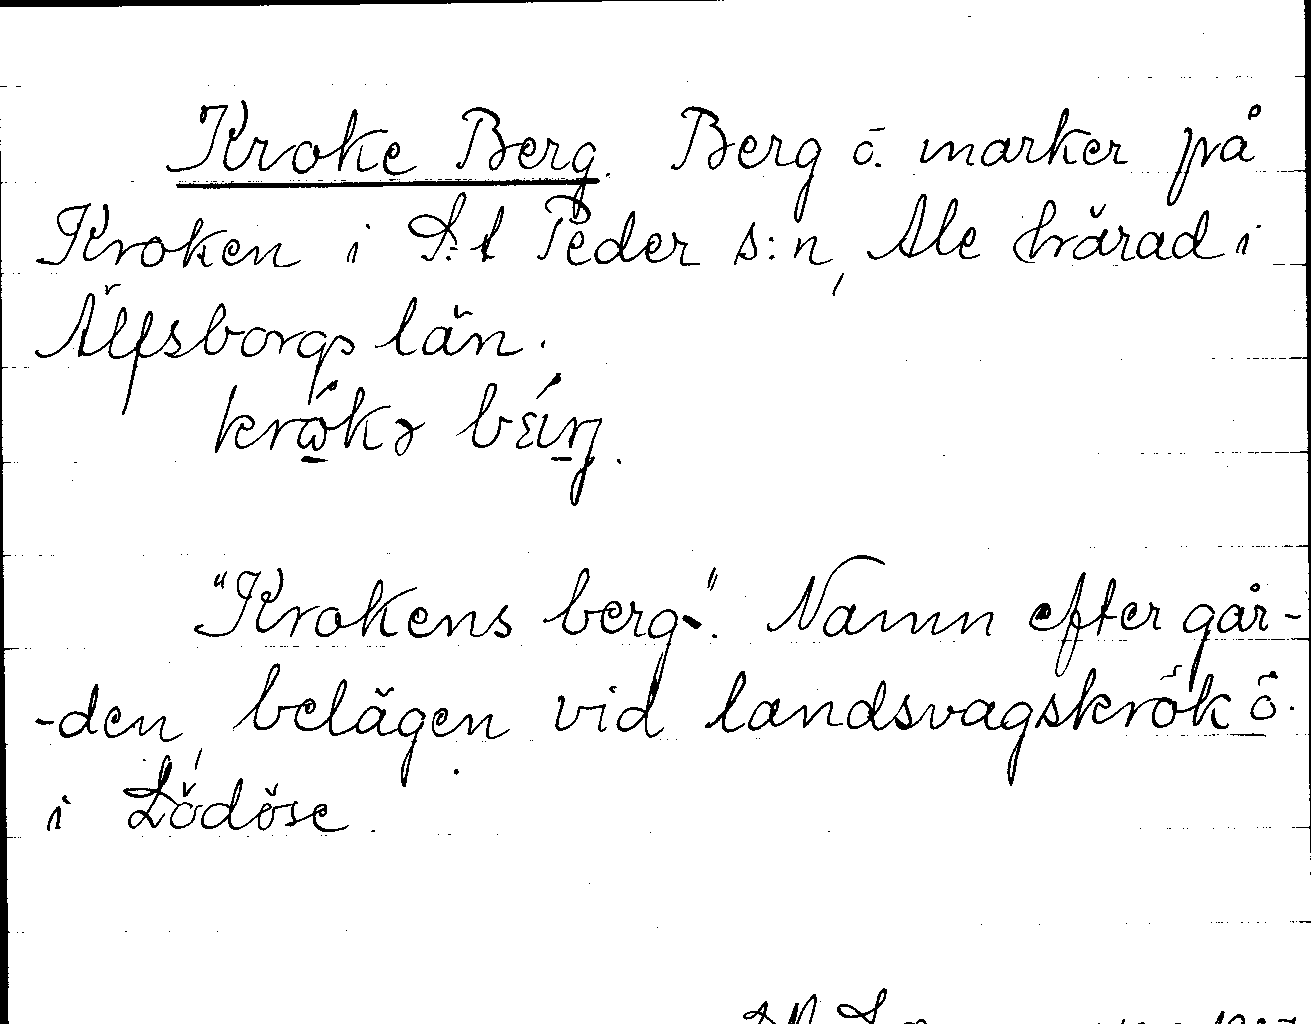 Kroke Berg. Berg ö. marker på
Kroken i S:t Peder s:n, Ale härad i
Älfsborgs län.
krώkə bέıŋ.
"Krokens berg-". Namn efter går-
-den, belägen vid landsvagskrök ö.
i Lödöse.